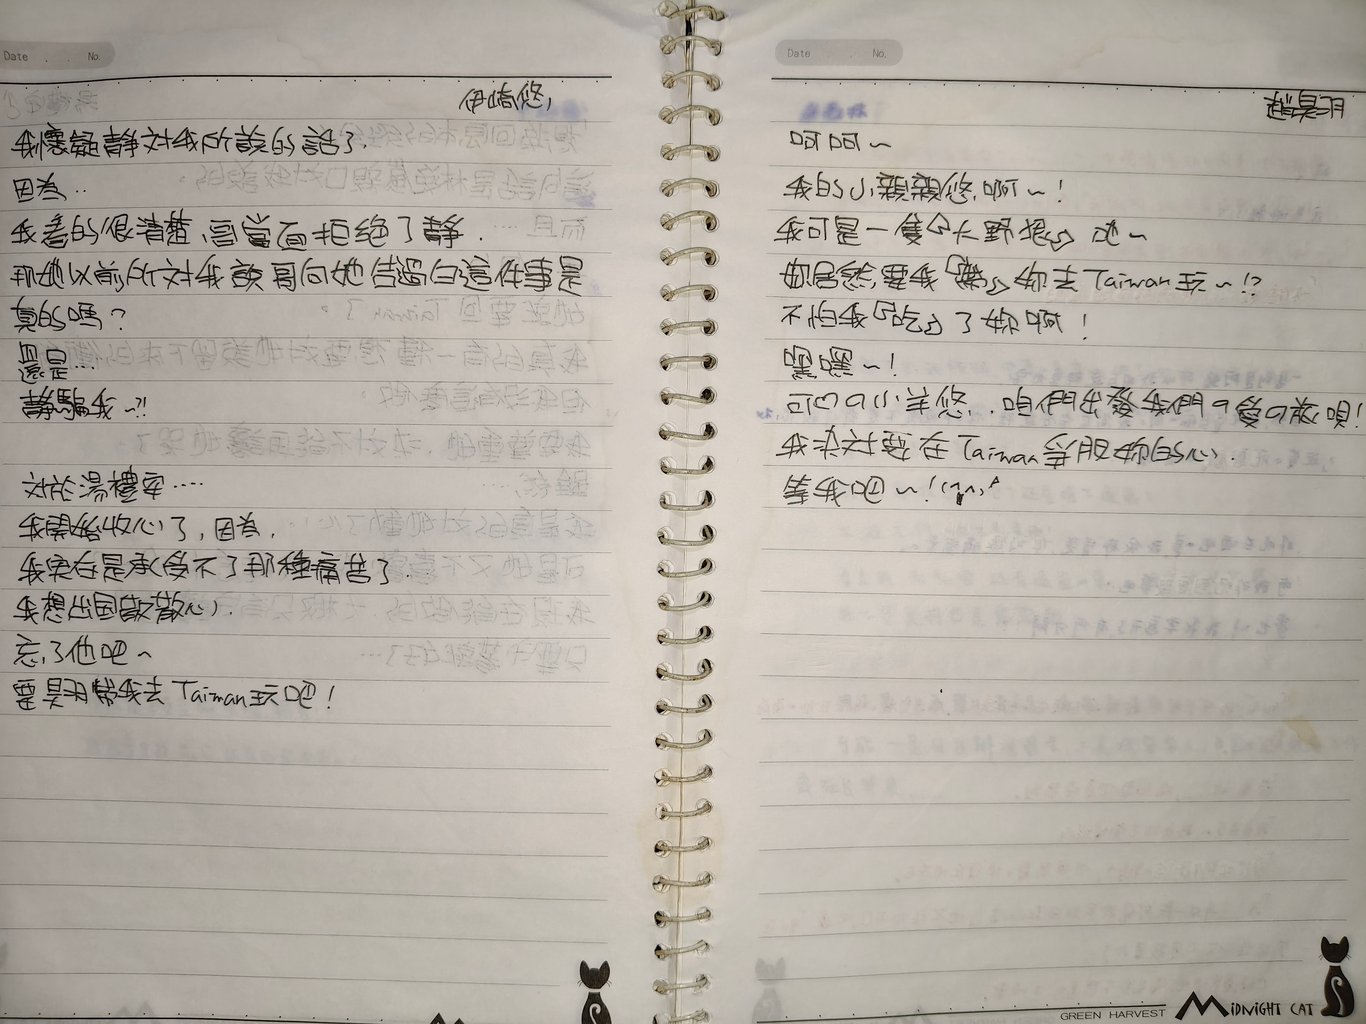 Date . . No.
伊崎悠
我懷疑靜對我所說的話了.
因為…
我看的很清楚,宮當面拒絕了靜.
那她以前所對我說哥向她告過白這件事是
真的嗎?
還是…
靜騙我~?!
對於湯禮率….
我開始收心了,因為,
我実在是承受不了那種痛苦了.
我想出国散散心.
忘了他吧~
要昊玥帶我去Taiwan玩吧!
Date . . No.
趙昊玥
呵呵~
我的小親親悠,啊~!
我可是一隻『大野狼』吔~
妳居然要我『帶』妳去Taiwan玩~!?
不怕我『吃』了妳啊!
嘿嘿~!
可心の小羊悠..咱們出發我們の愛の旅唄!
我決対要在Taiwan爭服妳的心.
等我吧~!(^^)
GREEN HARVEST MIDNIGHT CAT